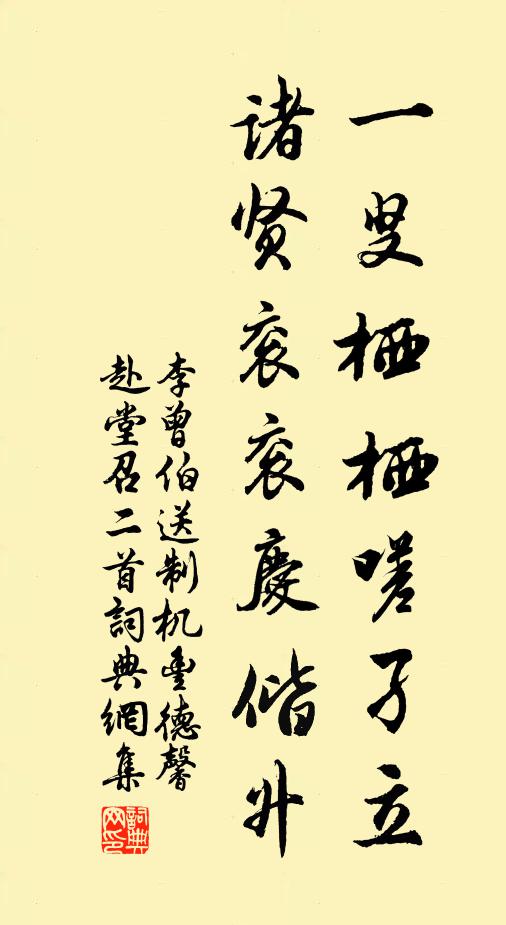 一叟栖栖嗟孑立
诸贤衮衮庆偕升
李曾伯送制机丰德馨
赴堂召二首詞典網集
詞典
网印